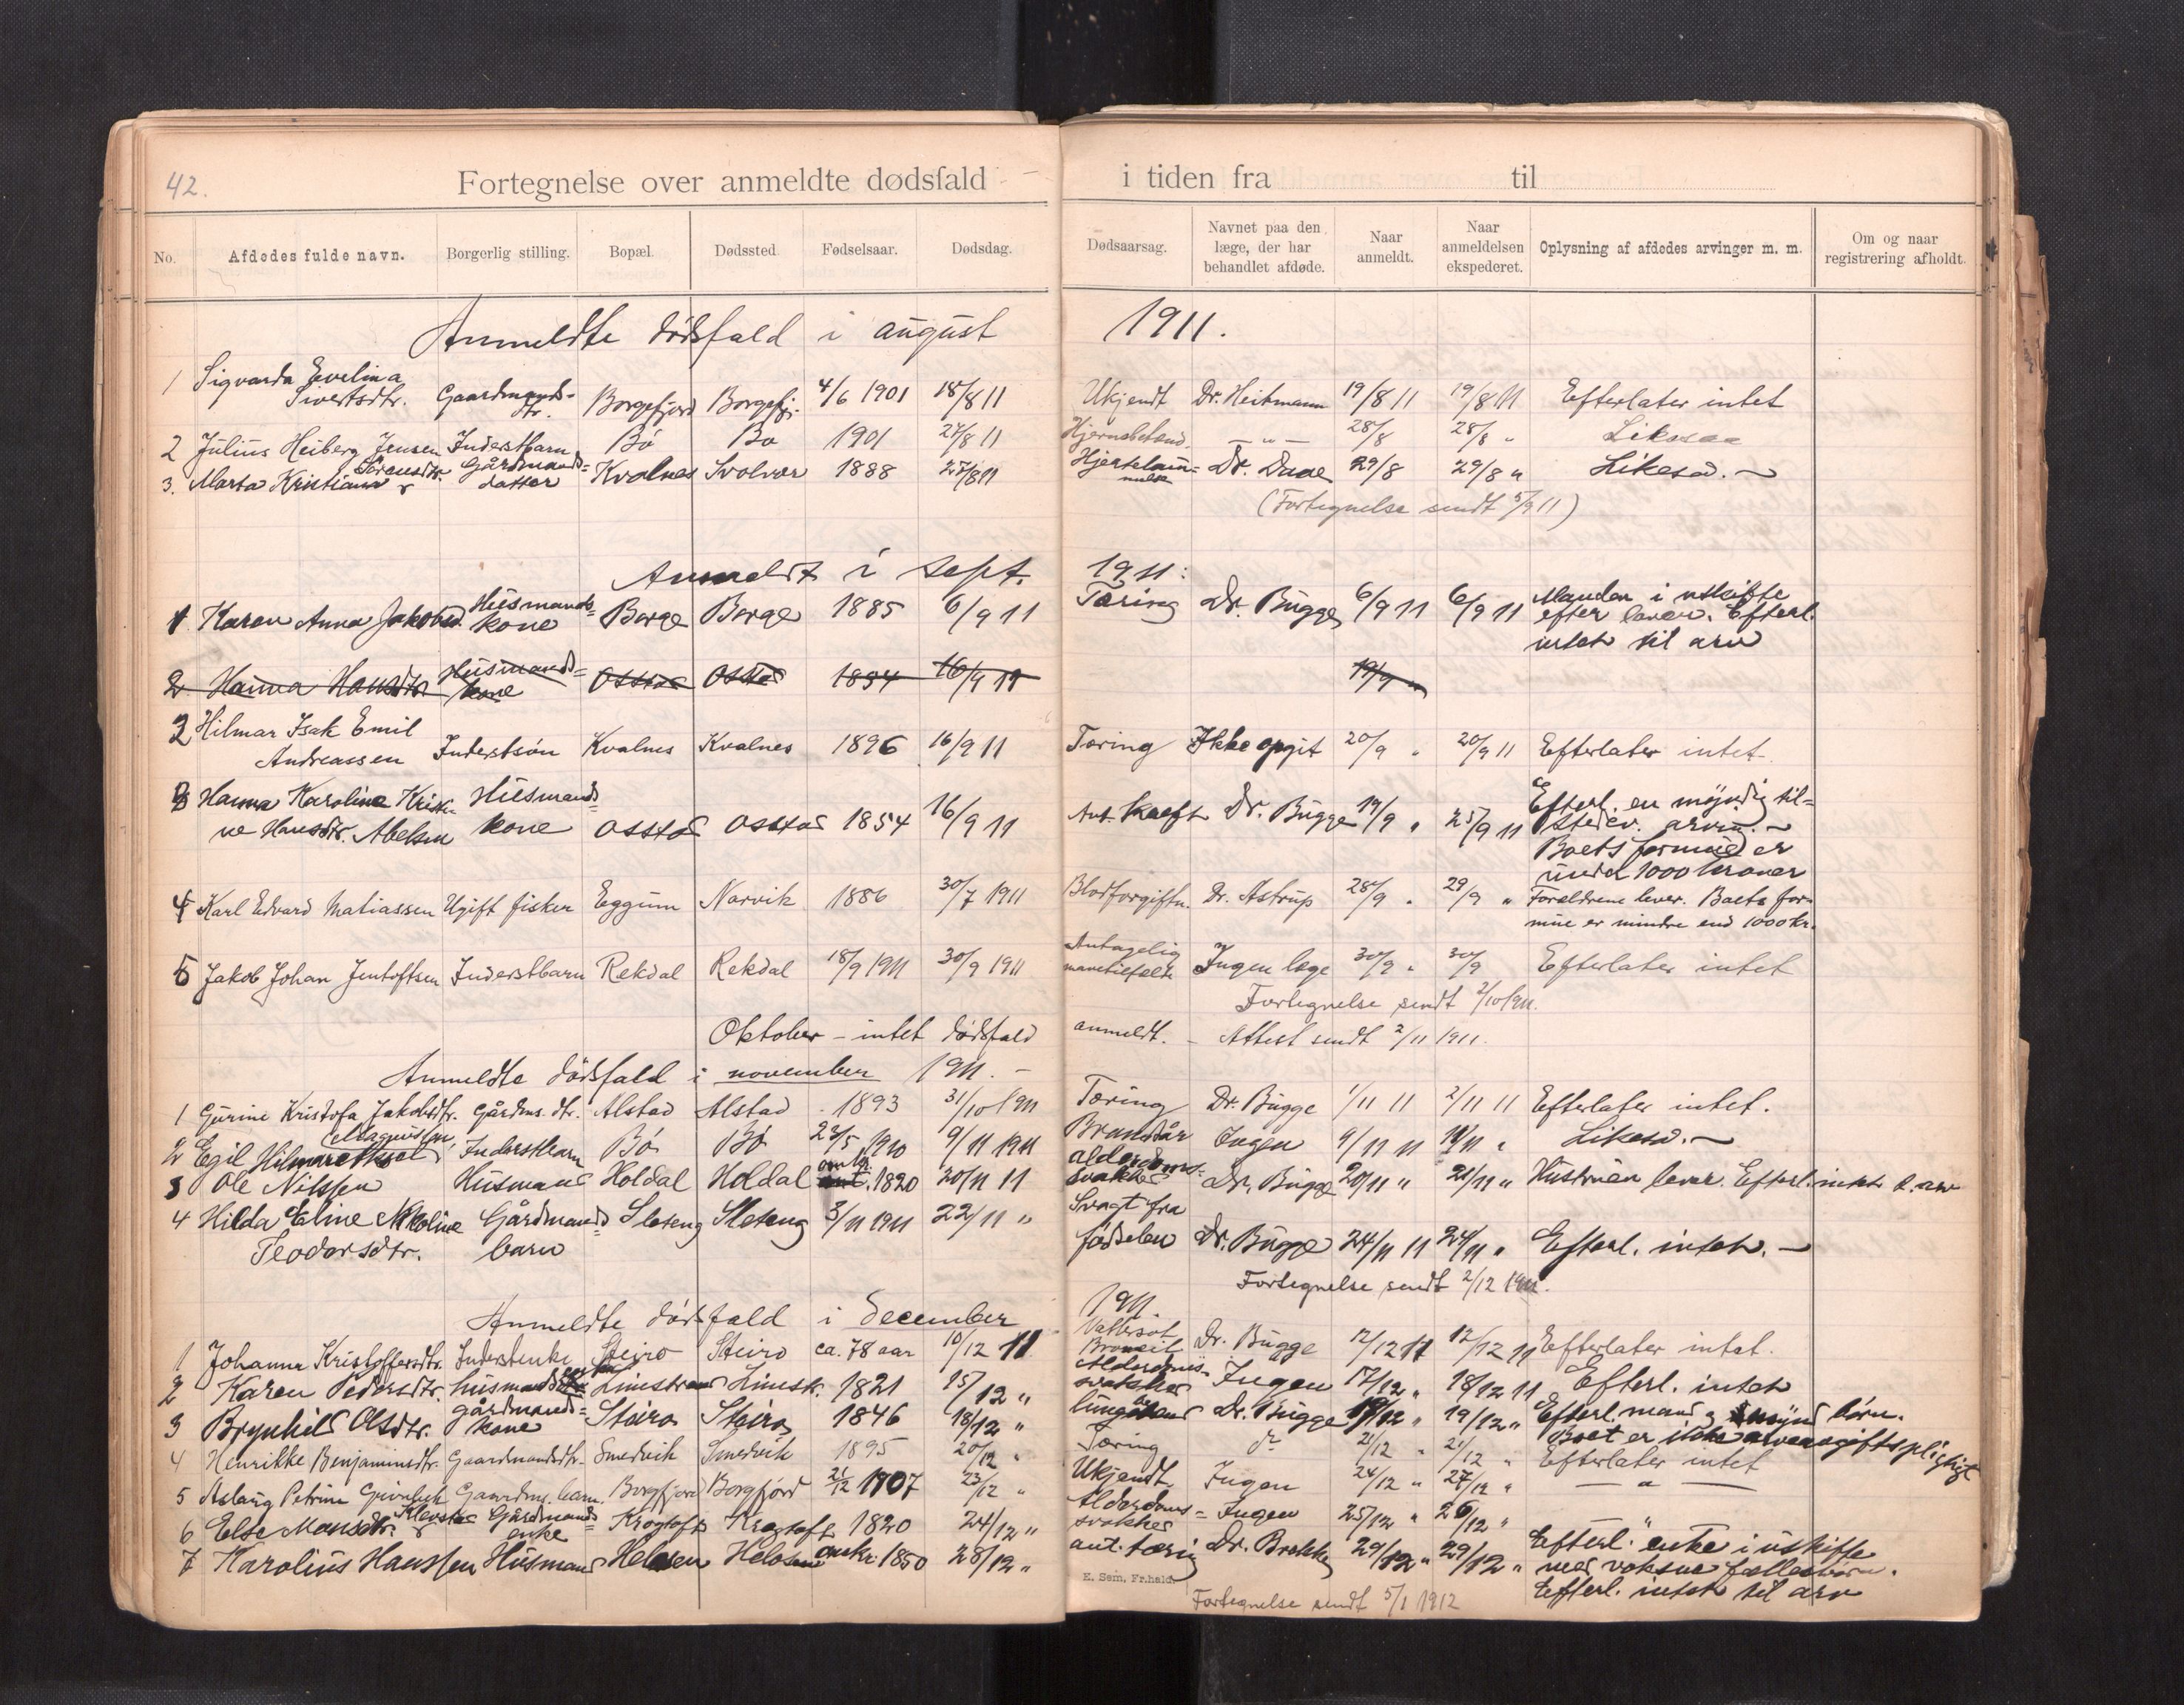 42.
Fortegnelse over anmeldte dødsfald i tiden fra til
No. Afdødes fulde navn. Borgerlig stilling. Bopæl. Dødssted. Fødselsaar. Dødsdag. Dødsaarsag. Navnet paa den læge, der har behandlet afdøde. Naar anmeldt. Naar anmeldelsen ekspederet. Oplysning af afdødes arvinger m. m. Om og naar registrering afholdt.
Anmeldte dødsfald i august 1911.
1 Sigvarda Evelina
Sivertsdtr. Gaardmands-dtr. Borgefjord Borgefj. 4/6 1901 18/8 11 Ukjendt Dr. Heitmann 19/8 11 19/8 11 Efterlater intet
2 Julius Heiberg Jensen Inderstbarn Bö Bö 1901 27/8 11 Hjernebetænd. — " — 28/8 28/8 " Likesaa
3. Marta Kristiane Sörensdtr. Gårdmands=datter Kvalnes Svolvær 1888 27/8 11 Dr. Daae 29/8 29/8 " Likeså. —
(Fortegnelse sendt 5/9 11)
Anmeldt i sept. 1911:
1 Karen Anna Jakobsd. Husmands=kone Borge Borge 1885 6/9 11 Tæring Dr. Bugge 6/9 11 6/9 11 Manden i uskifte
efter lever. Efterl.
intet til arv
2 Hanna Hansdtr Husmands=kone Osstad Osstad 1854 16/9 11 19/9 "
2 Hilmar Isak Emil
Andreassen Inderstsön Kvalnes Kvalnes 1896 16/9 11 Tæring Ikke opgit 20/9 " 20/9 11 Efterlater intet
3 Hanna Karoline Kristi-
ne Hansdtr. Abelsen Husmands=kone Osstad Osstad 1854 16/9 11 Ant. kræft Dr. Bugge 19/9 " 25/9 11 Efterl. en myndig til=
stedev. arving. —
Boets formue er
under 1000 kroner
4 Karl Edvard Matiassen Ugift fisker Eggum Narvik 1886 30/7 1911 Blodforgiftn. Dr. Astrup 28/9 " 29/9 " Forældrene lever. Boets for-
mue er mindre end 1000 kr.
5 Jakob Johan Jentoftsen Inderstbarn Rekdal Rekdal 18/9 1911 30/9 1911 Antagelig Ingen læge 30/9 " 30/9 Efterlater intet
Fortegnelse sendt 2/10 1911.
Oktober – intet dødsfald anmeldt. – Attest sendt 2/11 1911.
Anmeldte dødsfald i november 1911. –
1 Gurine Kristofa Jakobsdtr. Gårdms. dtr. Alstad Alstad 1893 31/10 1911 Tæring Dr. Bugge 1/11 11 2/11 11 Efterlater intet.
2 Egil Hilmar Aksel Magnussen Inderstbarn Bö Bö 23/5 1910 9/11 1911 Brandsår Ingen 9/11 11 Likeså. —
3 Ole Nilssen Husmand Holdal Holdal omkr. 1820 20/11 11 Alderdoms-svakhed Dr. Bugge 20/11 " 21/11 " Hustruen lever. Efterl. intet t. arv
4 Hilda Eline Nikoline
Teodorsdtr. Gårdmands=barn Sleseng Sleseng 3/11 1911 22/11 " Svagt fra
fødselen Dr. Bugge 24/11 11 24/11 " Efterl. intet. —
Fortegnelse sendt 2/12 1911.
Anmeldte dødsfald i december 1911.
1 Johanna Kristoffersdtr. Inderstenke Steiro Steiro ca. 78 aar 10/12 11 Vattersot Dr. Bugge 12/12 11 12/12 11 Efterlater intet.
2 Karen Pedersdtr. husmands Limstrand Limstr. 1821 15/12 " Alderdoms-svakhed Ingen 17/12 " 18/12 11 Efterl. intet
3 Brynhild Olsdtr. gårdmands=kone Steiro Steiro 1846 18/12 " Dr. Bugge 19/12 " 19/12 " Efterl. mand børn.
Boet er ikke arveavgiftspligtigt
4 Henrikke Benjaminsdtr. Gaardmandsdtr. Smedvik Smedvik 1895 20/12 " Tæring do 21/12 " 21/12 " Efterlater intet
5 Aslaug Petrine Gaardms. barn. Borgfjord Borgfjord 21/12 1907 23/12 " Ukjendt Ingen 24/12 " 27/12 " — " —
6 Else Monsdtr. Klevstad Gårdmands=enke Krogtoft Krogtoft 1820 24/12 " Alderdoms=svakhed Ingen 25/12 " 26/12 " "
7 Karolius Hanssen Husmand Helosen Helosen omkr. 1850 28/12 " ant. tæring 29/12 " 29/12 " Efterl. enke i uskifte
med voksne fællesbørn.
Efterl. intet til arv
E. Sem, Fr.hald.
Fortegnelse sendt 5/1 1912